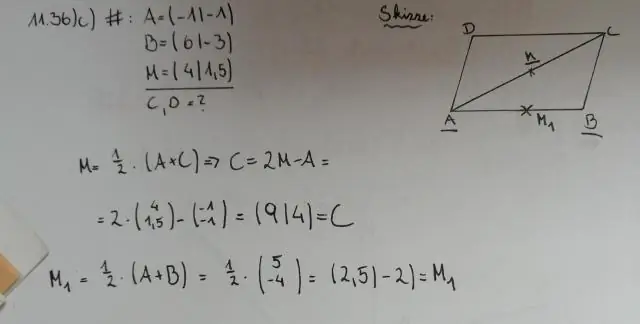 11.36)c) #: A=(-1|-1)
B=(6|-3)
M=(4|1,5)
C,D=?
Skizze:
D
C
M
A
M₁
B
M= 1/2 · (A+C) ⇒ C= 2M-A=
= 2·(4 1,5) - (-1 -1) = (9|4)=C
M₁ = 1/2 · (A+B) = 1/2 · (5 -4) = (2,5|-2)=M₁